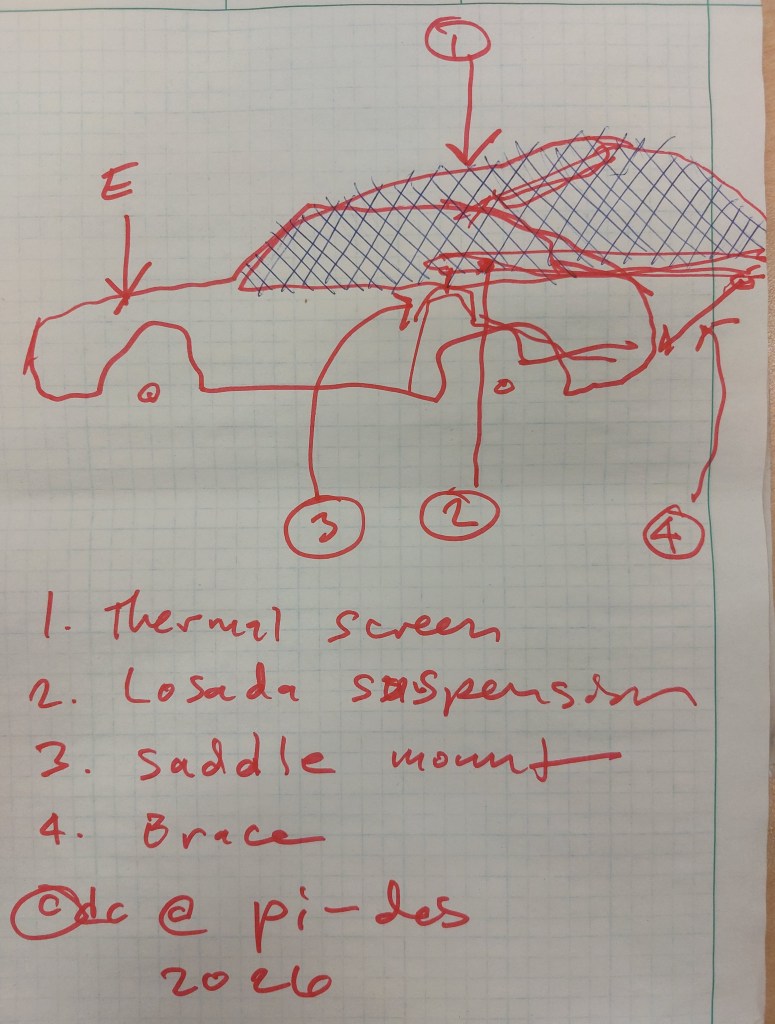 1
E
3
2
4
1. Thermal screen
2. Losada suspension
3. saddle mount
4. Brace
© dc @ pi-des
2026